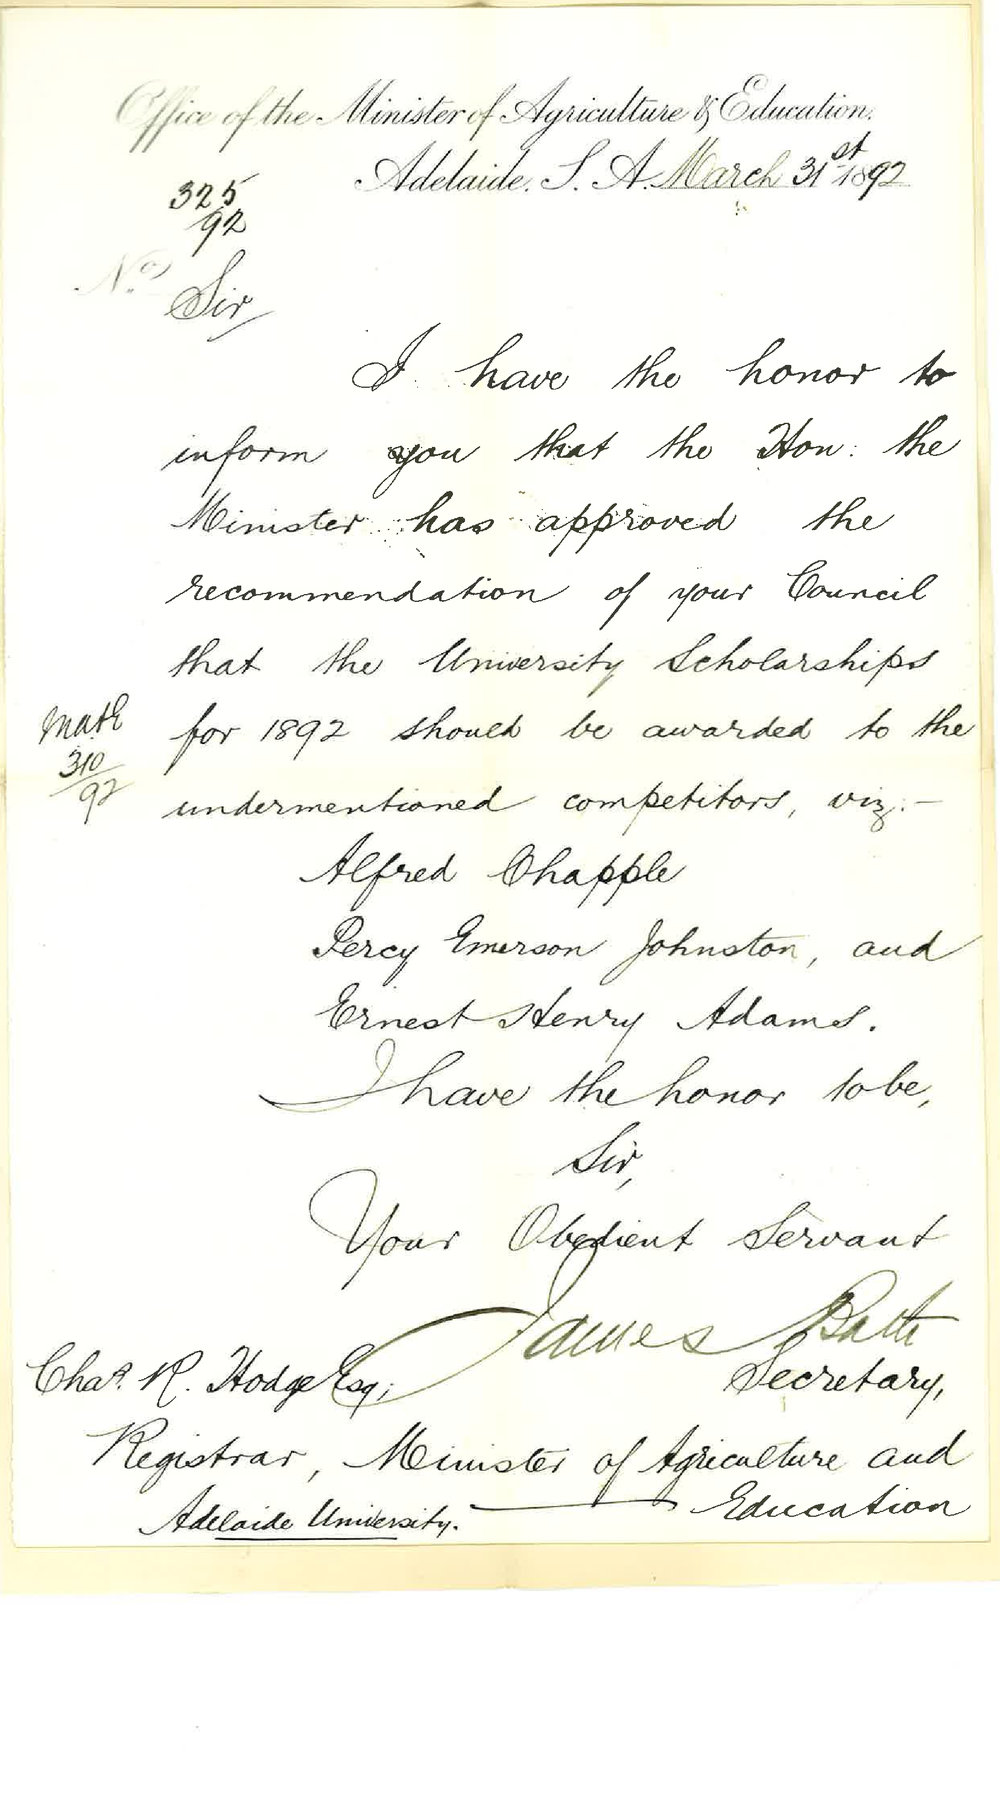 Office of the Minister of Agriculture & Education.
Adelaide. S. A. March 31st 1892
325
92
No.
Sir
I have the honor to
inform you that the Hon: the
Minister has approved the
recommendation of your Council
that the University Scholarships
for 1892 should be awarded to the
310
92
undermentioned competitors, viz:-
Alfred Chapple
Percy Emerson Johnston, and
Ernest Henry Adams.
I have the honor to be,
Sir,
Your Obedient Servant
James Bath
Secretary,
Chas. R. Hodge Esq;
Registrar, Minister of Agriculture and
Adelaide University. Education